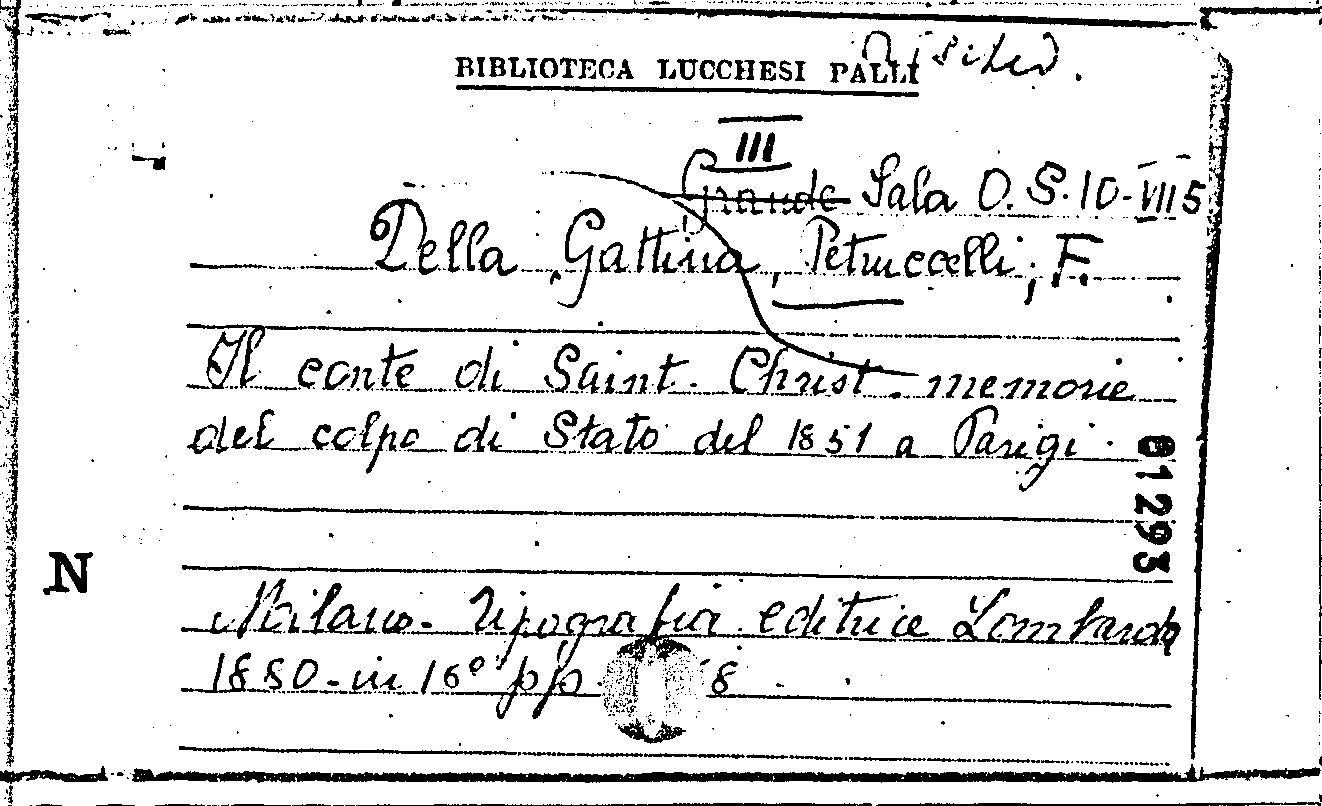 BIBLIOTECA LUCCHESI PALLI
III
Grande Sala O. S. 10-VII 5
Della Gattina, Petruccelli, F.
Il conte di Saint. Christ. memorie
del colpo di Stato del 1851 a Parigi.
61293
N
Milano. Tipografia editrice Lombarda
1880-in 16° pp. 8